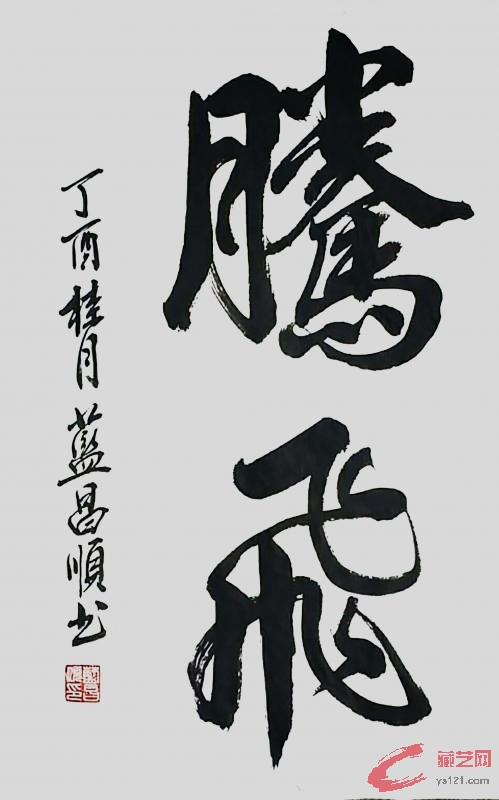 騰飛
丁酉桂月藍昌順书
藏艺网
ys121.com